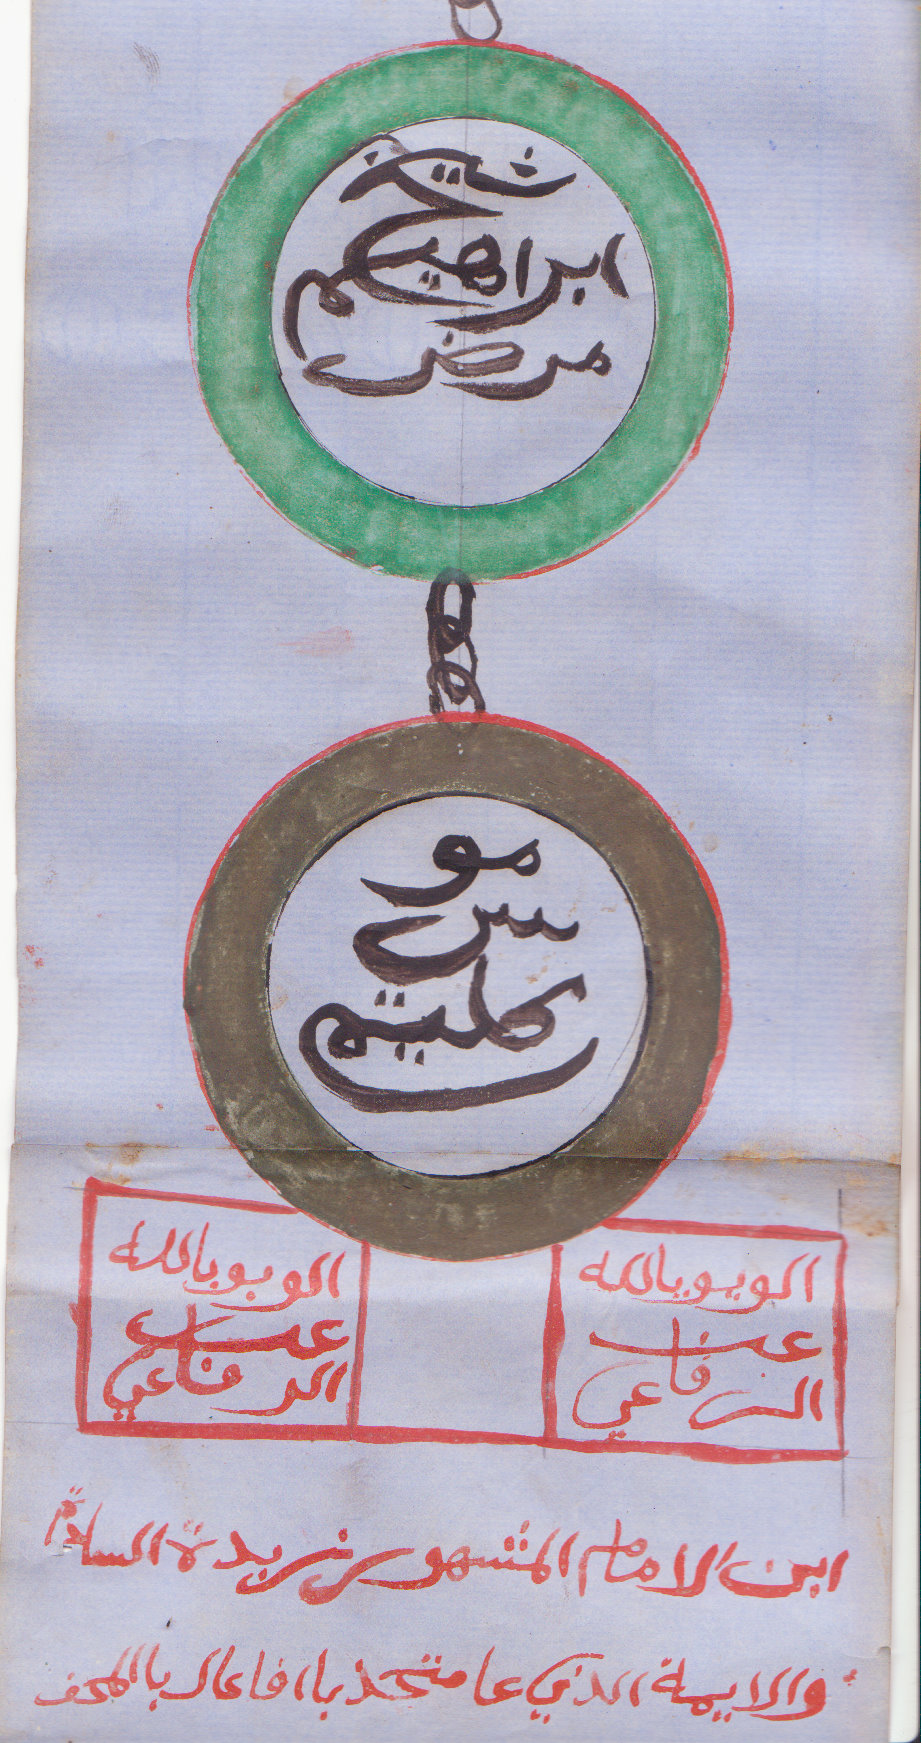 شيخ
ابراهيم
مرض
مو
سى
كليتم
الوبوبالله
عبد
الرفاعي
الوبوبالله
عبد
الرفاعي
ابن الامام المشهور بزبدة السادة
والايمة الذي عا متحد باافاعال باالمحف